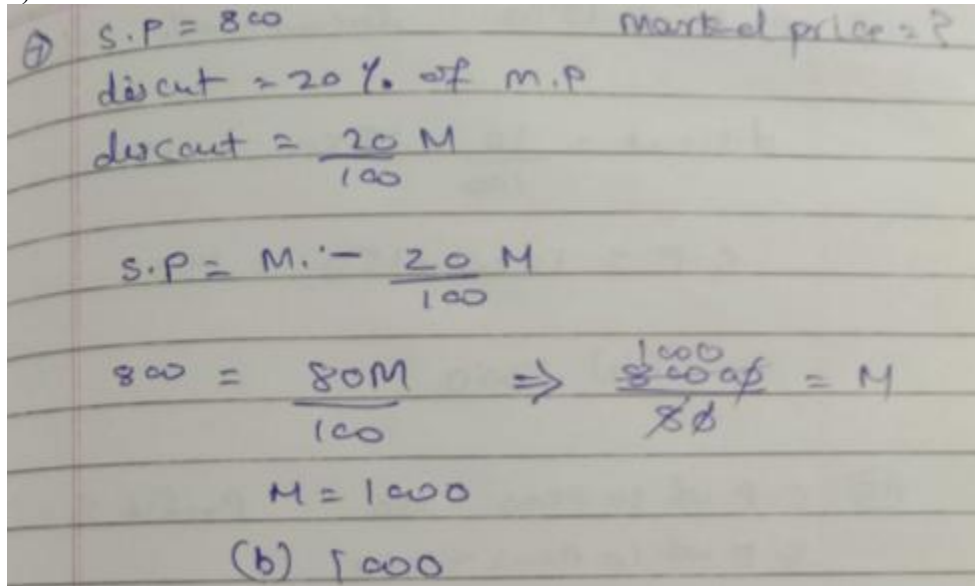 ⑦ S.P = 800 Marked price = ?
discut = 20 % of m.p
discout = 20/100 M
S.P = M. - 20/100 M
800 = 80M/100 ⇒ 80000/80 = M 1000
M = 1000
(b) 1000